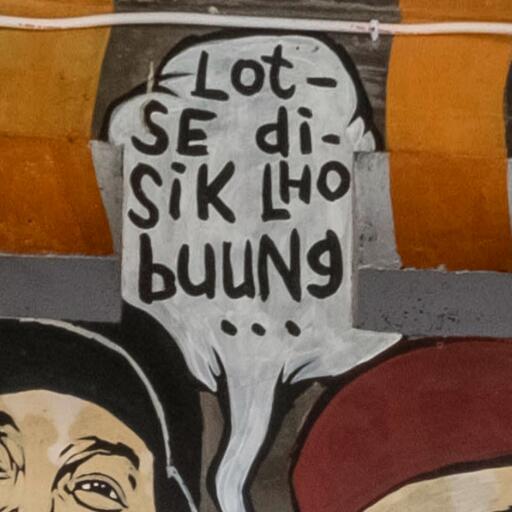 Lot-
SE di-
SiK LHO
buuNg
...